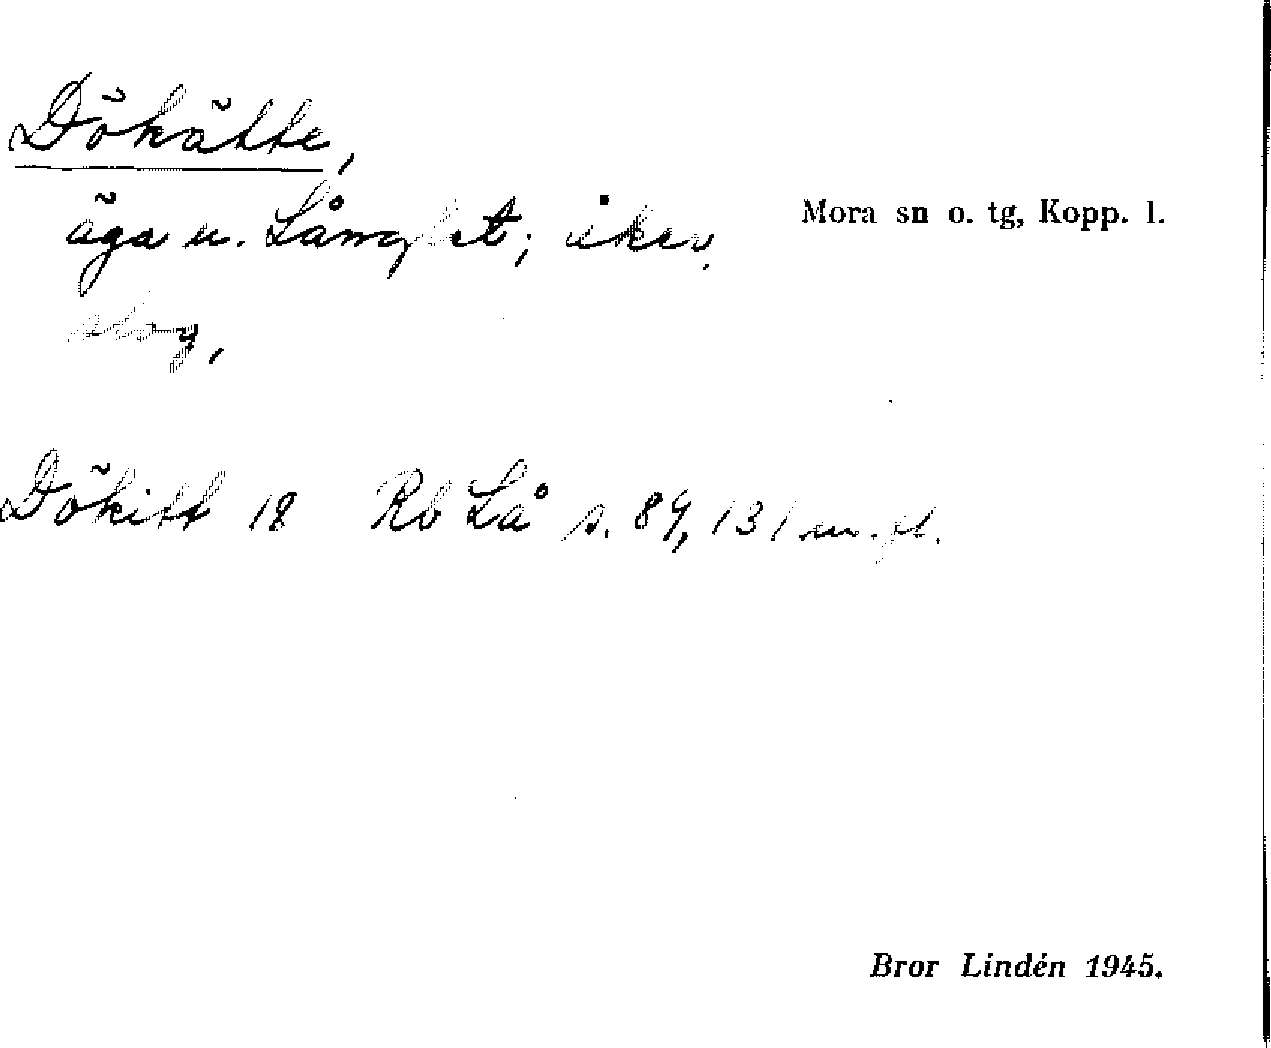 Dökätte,
äga u. Långlet; åker,
skog,
Mora sn o. tg, Kopp. l.
Dökitt 18 Rb Lå s. 84, 131 m. fl.
Bror Lindén 1945.